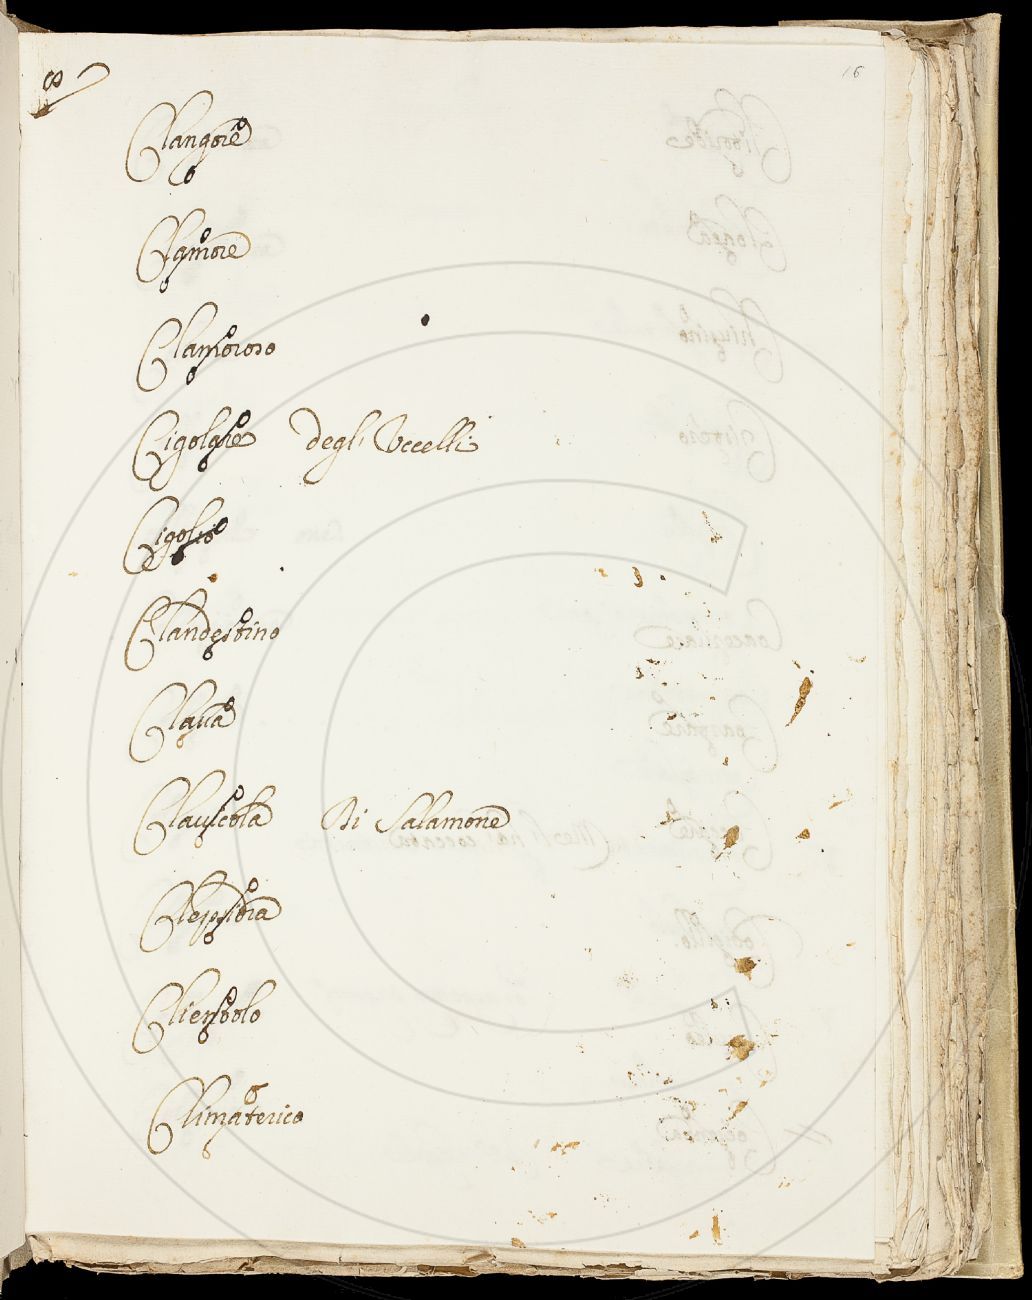 16
Clangore
Clamore
Clamoroso
Cigolare degli Uccelli
Cigolio
Clandestino
Classe
Clausola di Salamone
Clepsidra
Clientolo
Climaterico